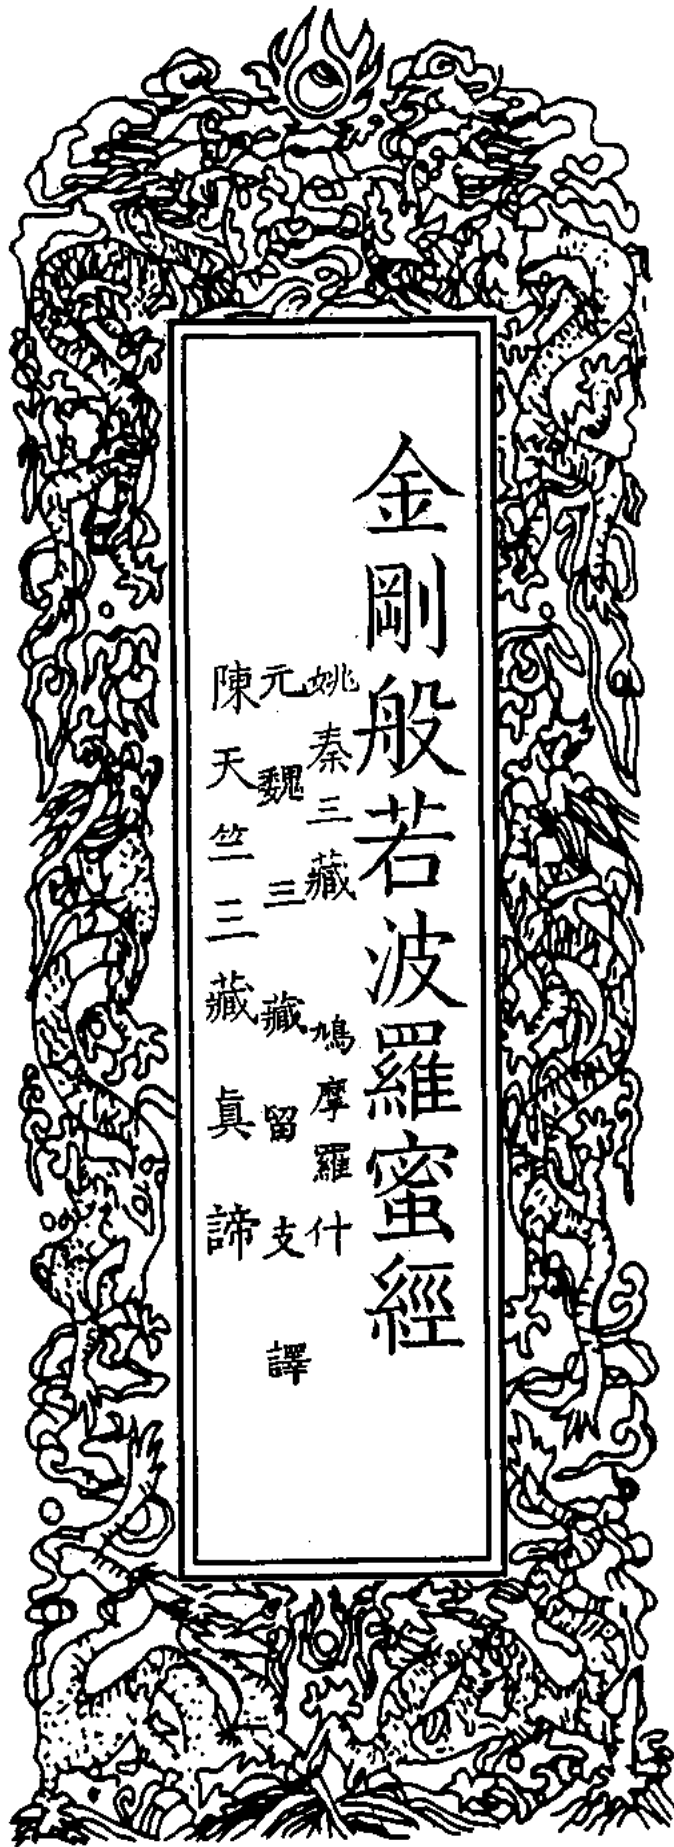 金剛般若波羅蜜經
姚秦三藏 鳩摩羅什
元魏三藏留支 譯
陳天竺三藏眞諦